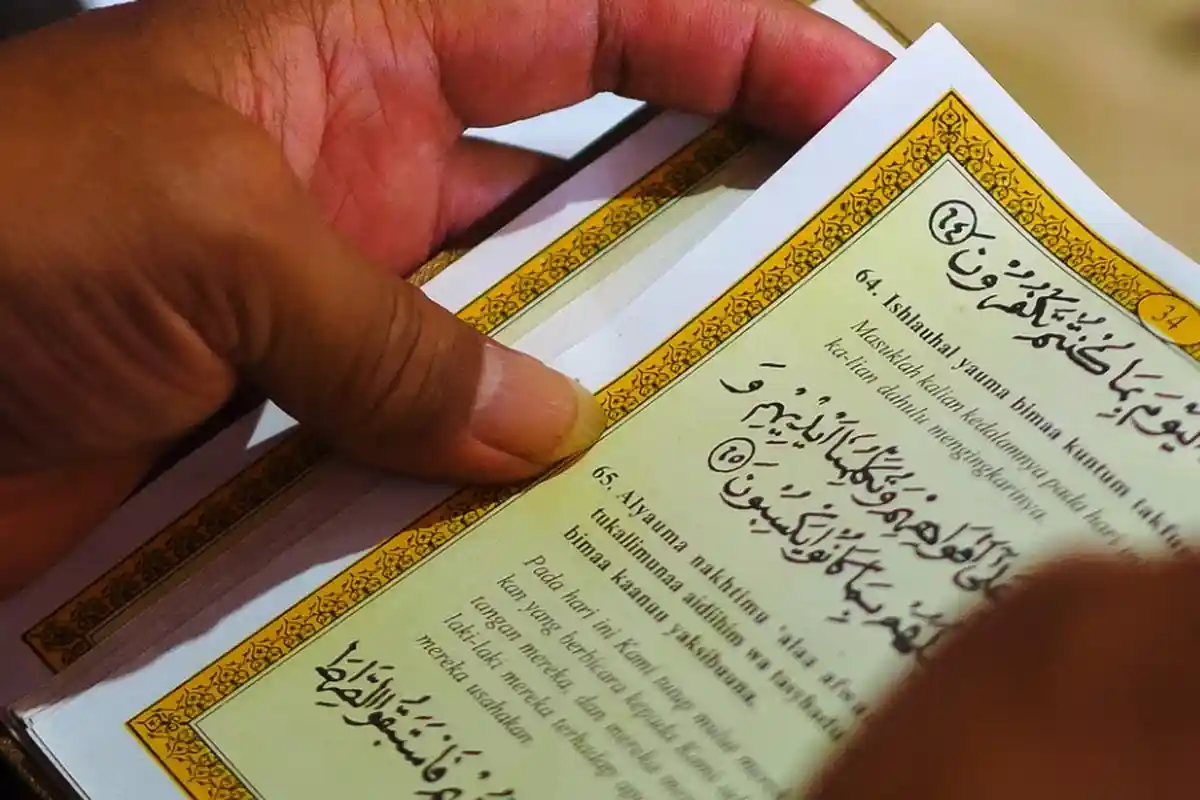 34
الْيَوْمَ بِمَا كُنْتُمْ تَكْفُرُوْنَ ٦٤
64. Ishlauhal yauma bimaa kuntum takfu
Masuklah kalian kedalamnya pada hari
ka-lian dahulu mengingkarinya.
عَلَىٰٓ اَفْوَاهِهِمْ وَتُكَلِّمُنَآ اَيْدِيْهِمْ وَ
بِمَا كَانُوْا يَكْسِبُوْنَ ٦٥
65. Alyauma nakhtimu 'alaa afwa
tukalimunaa aidiihim wa tasyhadu
bimaa kaanuu yaksibuuna.
Pada hari ini Kami tutup mulut
kan yang berbicara kepada Kami
tangan mereka, dan mereka
laki-laki mereka terhadap
mereka usahakan.
فَاسْتَبَقُوا الصِّرَاطَ